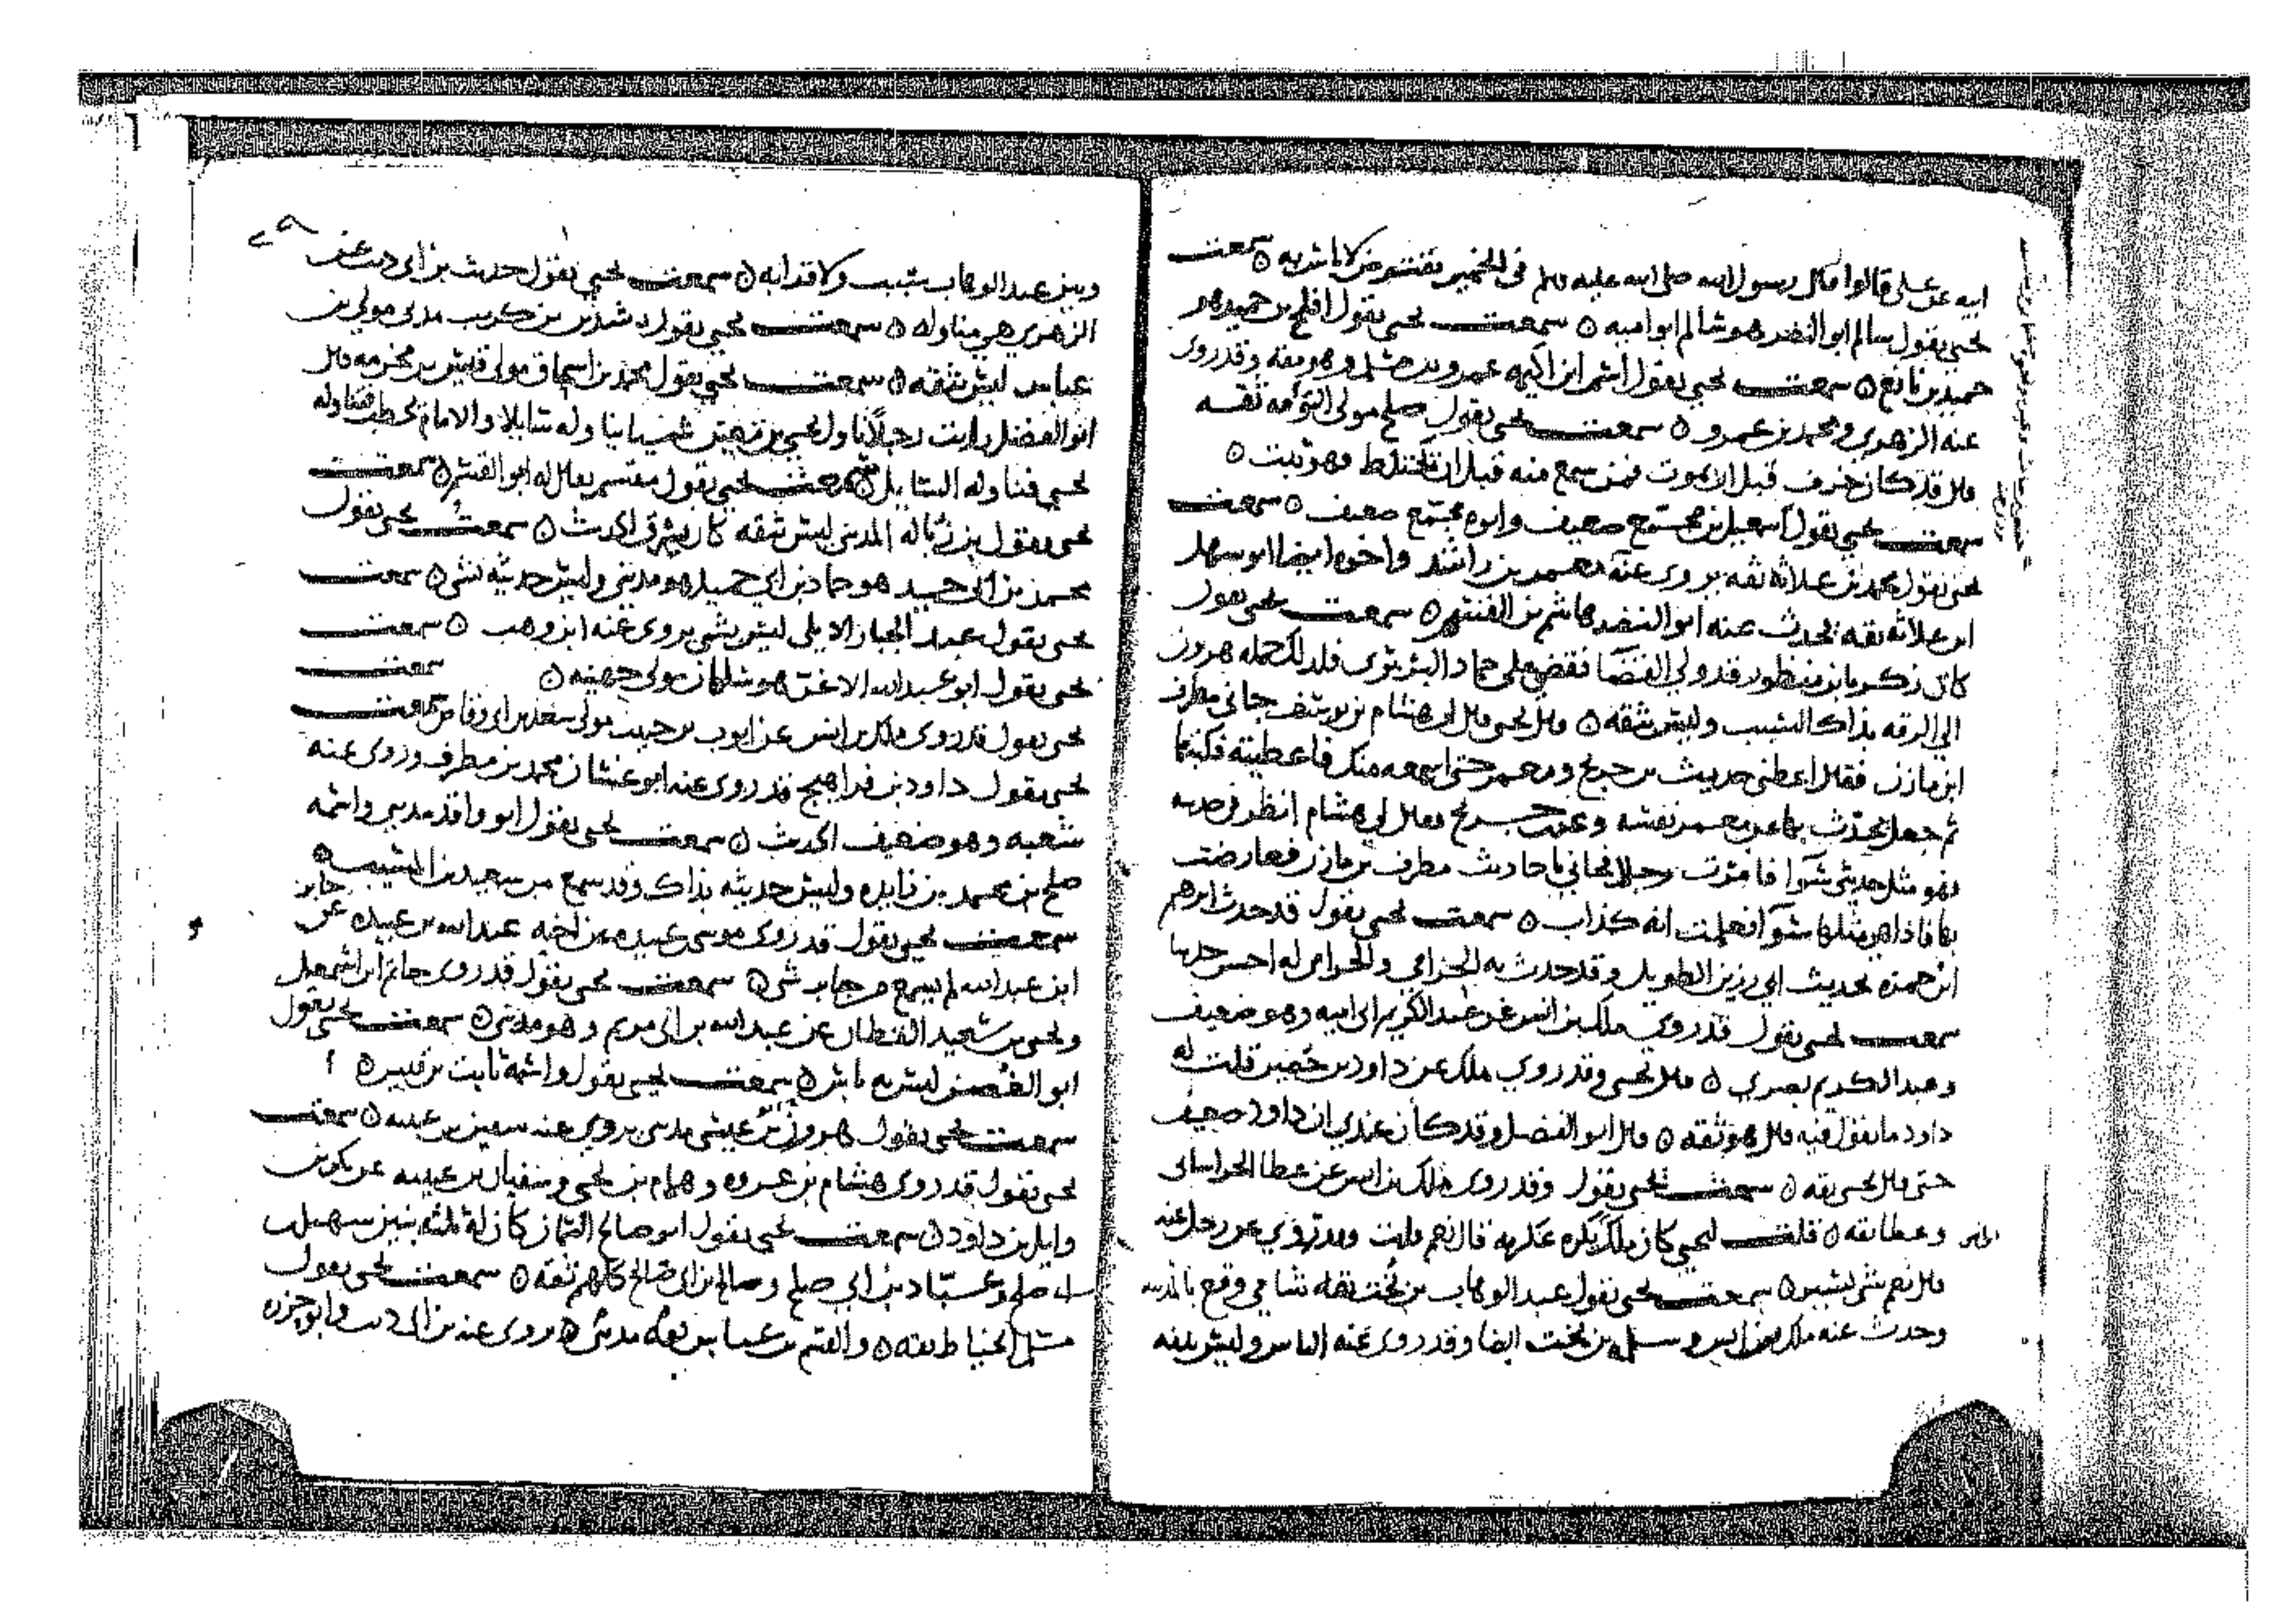 ابيه عن على قالوا قال رسول الله صلى الله عليه وسلم في الخمير لا باس به ٥ سمعت
يحيى يقول سالم ابو النضر هو سالم ابو اميه ٥ سمعت يحيى يقول افلح بن حميد هو
حميد بن نافع ٥ سمعت يحيى يقول اسم ابن اكيمه عمرو وهو ثقه وقد روى
عنه الزهري ومحمد بن عمرو ٥ سمعت يحيى يقول صلح مولى التوأمه ثقه
قال قد كان خرف قبل ان يموت فمن سمع منه قبل ان يختلط فهو ثبت ٥
سمعت يحيى يقول اسمعيل بن مجمع ضعيف وابوه مجمع ضعيف ٥ سمعت
يحيى يقول محمد بن علاثه ثقه يروى عنه معمر بن راشد واخوه ايضا ابو سهل
ابن علاثه ثقه يحدث عنه ابو النضر هاشم بن القسم ٥ سمعت يحيى يقول
كان زكريا بن منظور قد ولي القضا فقضى على حماد البربري فلذلك حمله هرون
الى الرقه بذاك السبب وليس بثقه ٥ قال يحيى قال لى هشام بن يوسف جاني مطرف
ابن مازن فقال اعطنى حديث بن جريج ومعمر حتى اسمعه منك فاعطيته فكتبها
ثم جعل يحدث بها عن معمر نفسه وعن بن جريج فقال لي هشام انظر في حديثه
فهو مثل حديثي سوا فامرت رجلا فجاني باحاديث مطرف بن مازن فعارضت
بها فاذا هي مثلها سوا فعلمت انه كذاب ٥ سمعت يحيى يقول قد حدث ابرهيم
ابن حمزه بحديث ابي رزين الطويل وقد حدث به الحزامي والحزامى له احسن حديثا
سمعت يحيى يقول قد روى ملك بن انس عن عبد الكريم ابى اميه وهو ضعيف
وعبد الكريم بصري ٥ قال يحيى وقد روى ملك عن داود بن حصين قلت له
داود ما تقول فيه قال هو ثقه ٥ قال ابو الفضل وقد كان عندي ان داود ضعيف
حتى قال يحيى ثقه ٥ سمعت يحيى يقول وقد روى ملك بن انس عن عطا الخراسانى
وعطا ثقه ٥ قلت ليحيى كان ملك يكره عكرمه قال نعم قلت وقد روى عن رجل عنه
قال نعم شى يسير ٥ سمعت يحيى يقول عبد الوهاب بن بخت ثقه شامي وقع بالمدينه
وحدث عنه ملك بن انس وسلمه بن بخت ايضا وقد روى عنه الناس وليس بينه
وبين عبد الوهاب سبب ولا قرابه ٥ سمعت يحيى يقول حديث بن ابى ذئب عن
الزهري هي مناوله ٥ سمعت يحيى يقول رشدين بن كريب مدنى مولى بن
عباس ليس بثقه ٥ سمعت يحيى يقول محمد بن اسحاق مولى قيس بن مخرمه قال
ابو الفضل رايت رجلا ناول يحيى بن معين وله سايلا والامام يخطب فناوله
يحيى فناوله السايل سمعت يحيى يقول مقسم يقال له ابو القسم ٥ سمعت
يحيى يقول بن زباله المدنى ليس بثقه كان يسرق الحديث ٥ سمعت يحيى يقول
محمد بن ابى حميد هو حماد بن ابي حميد هو مدينى وليس حديثه بشى ٥ سمعت
يحيى يقول عبد الجبار الايلى ليس بشى يروى عنه ابن وهب ٥ سمعت
يحيى يقول ابو عبد الله الاغر هو سلمان مولى جهينه ٥ سمعت
يحيى يقول قد روى ملك بن انس عن ايوب بن حبيب مولى سعد بن ابى وقاص سمعت
يحيى يقول داود بن فراهيج قد روى عنه ابو غسان محمد بن مطرف وروى عنه
شعبه وهو ضعيف الحديث ٥ سمعت يحيى يقول ابو واقد مدينى واسمه
صلح بن محمد بن زايده وليس حديثه بذاك وقد سمع من سعيد بن المسيب ٥
سمعت يحيى يقول قد روى موسى بن عبيده عن اخيه عبد الله بن عبيده عن جابر
ابن عبد الله لم يسمع من جابر شى ٥ سمعت يحيى يقول قد روى حاتم بن اسمعيل
ويحيى بن سعيد القطان عن عبد الله بن ابى مريم وهو مدينى ٥ سمعت يحيى يقول
ابو الغصن ليس به باس ٥ سمعت يحيى يقول واسمه ثابت بن قيس ٥
سمعت يحيى يقول هرون بن عيسى مدينى يروى عنه سفين بن عيينه ٥ سمعت
يحيى يقول قد روى هشام بن عروه وهمام بن يحيى وسفيان بن عيينه عن بكر بن
وايل بن داود ٥ سمعت يحيى يقول ابو صالح السمان كان له ثلثه بنين سهيل بن
ابى صلح وعباد بن ابي صلح وصالح بن ابى صالح كلهم ثقه ٥ سمعت يحيى يقول
مسلم الخياط ثقه ٥ والقسم بن عباس ثقه مدينى ٥ يروى عنه بن ابى ذئب وابو حزره